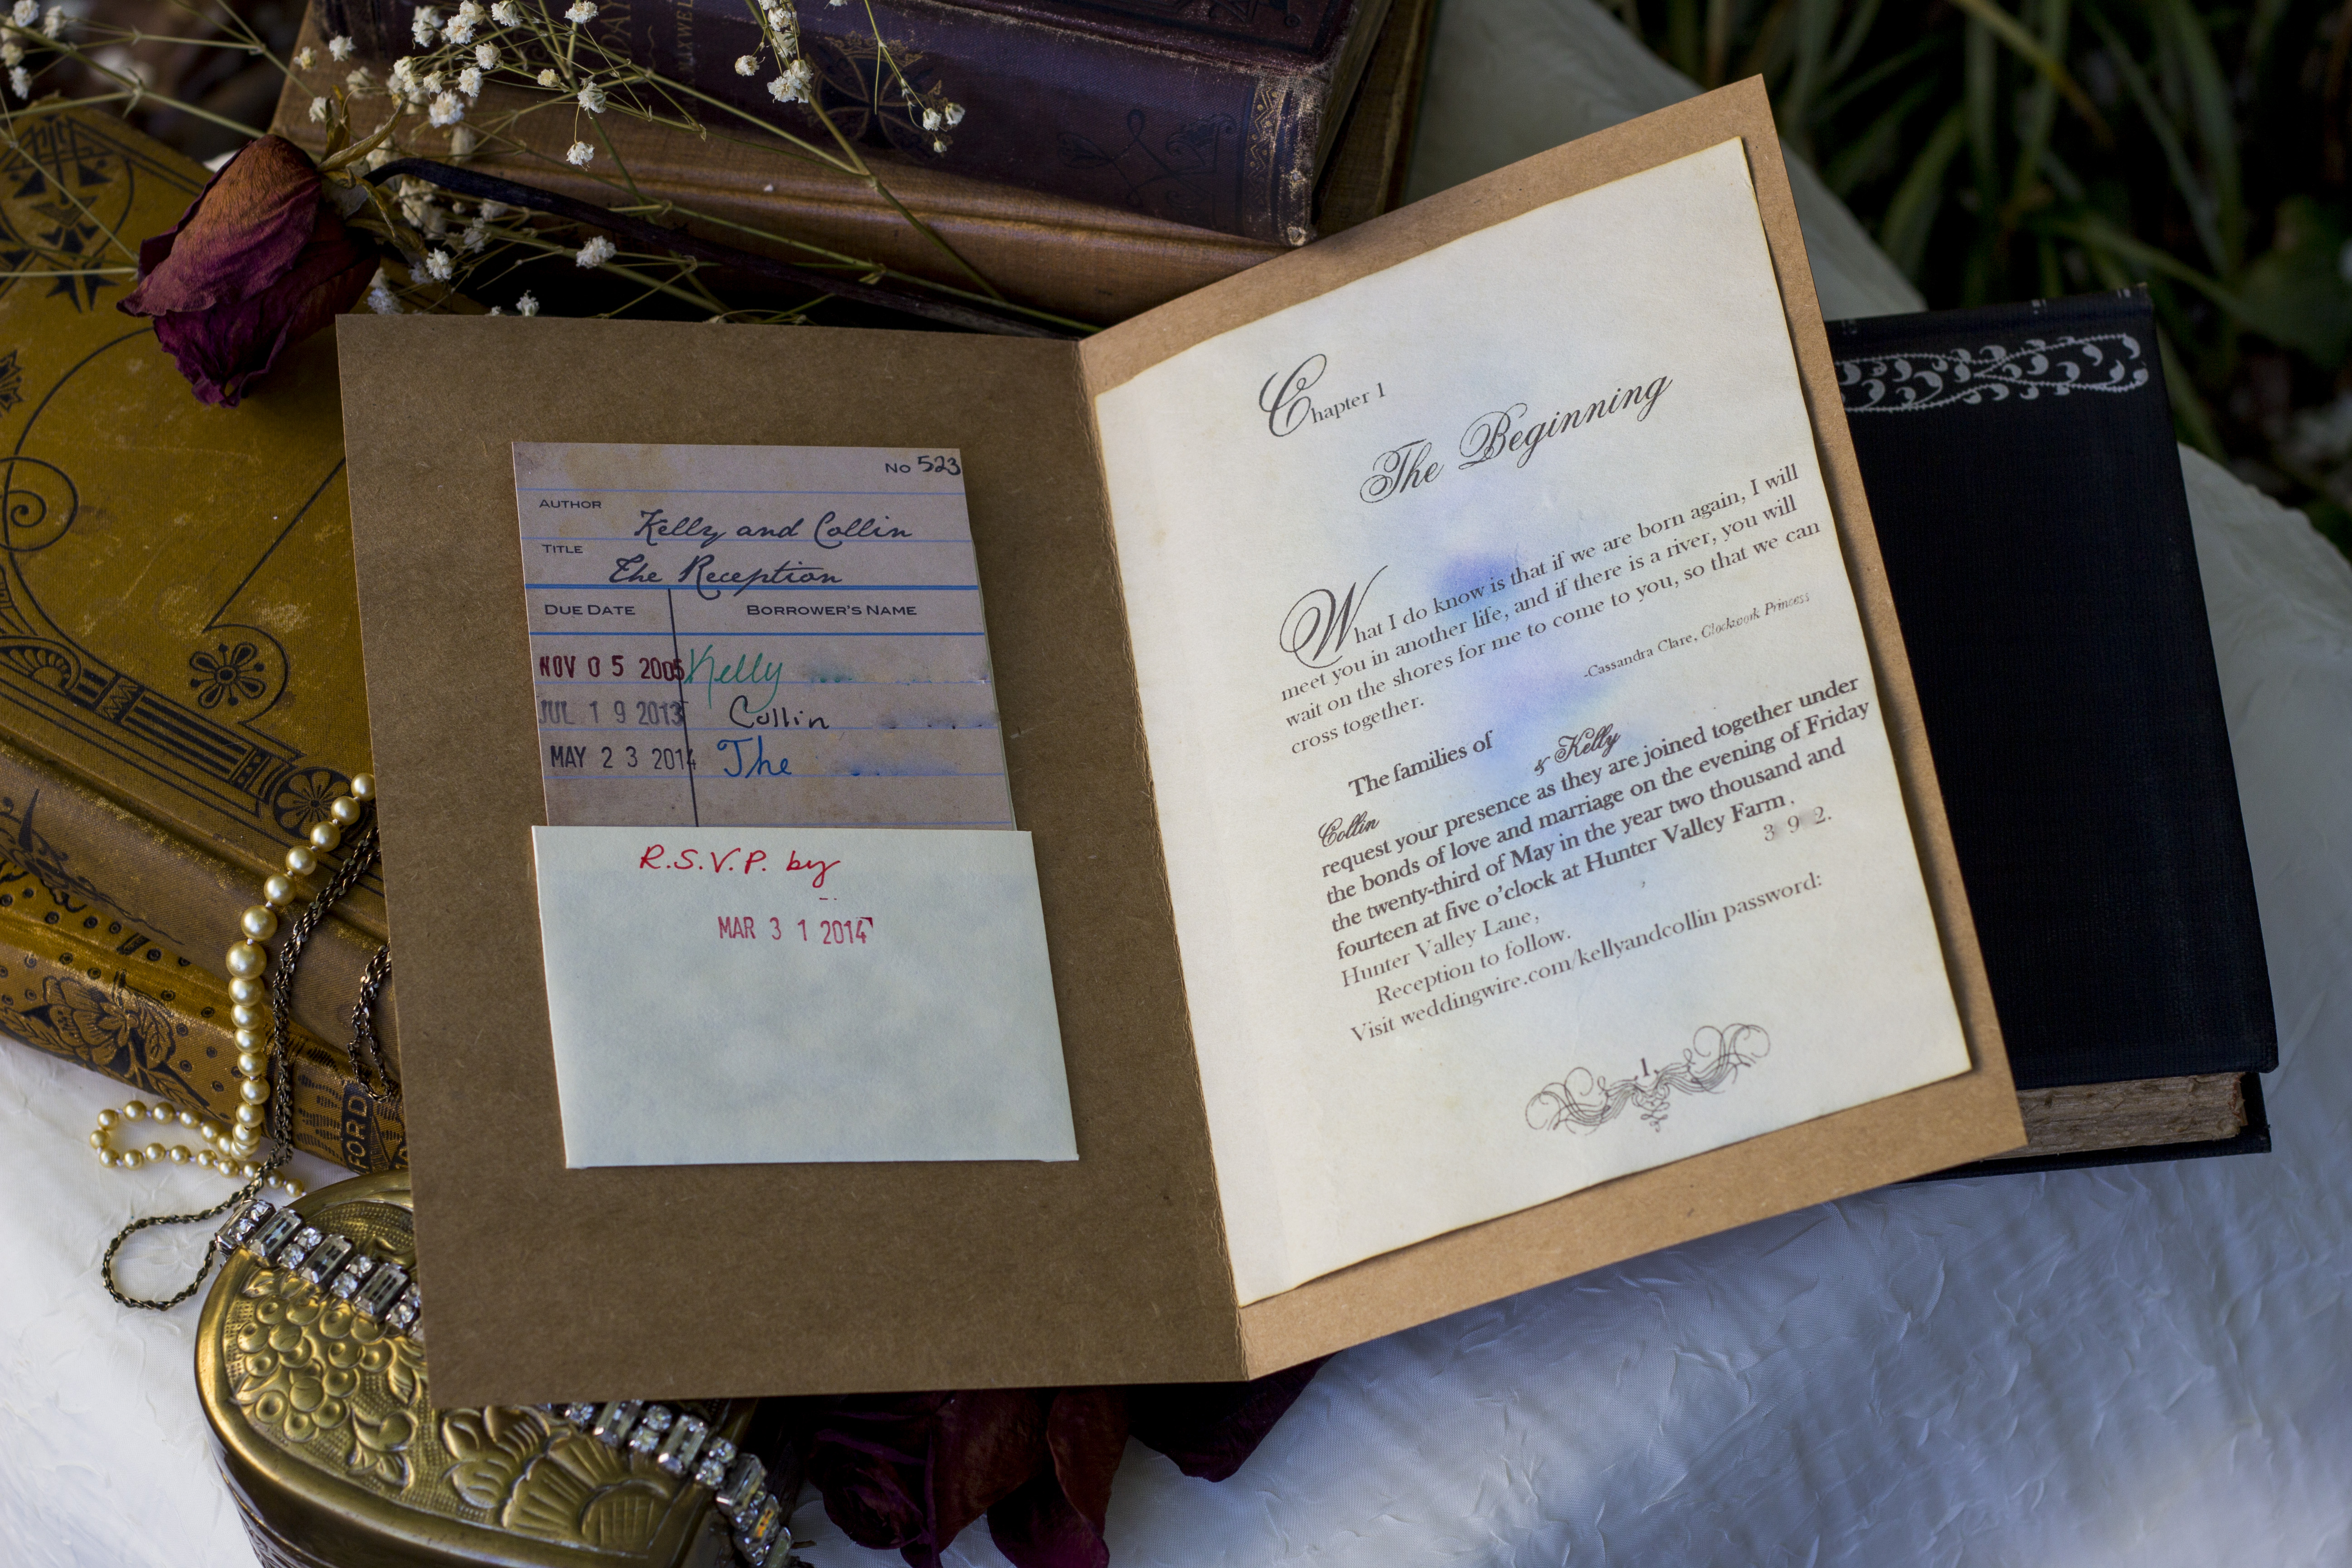 No 523
AUTHOR
Kelly and Collin
TITLE
The Reception
DUE DATE BORROWER'S NAME
NOV 05 2005 Kelly
JUL 19 2013 Collin
MAY 23 2014 The
R.S.V.P. by
MAR 31 2014
Chapter 1
The Beginning
What I do know is that if we are born again, I will
meet you in another life, and if there is a river, you will
wait on the shores for me to come to you, so that we can
cross together.
-Cassandra Clare, Clockwork Princess
The families of
Collin & Kelly
request your presence as they are joined together under
the bonds of love and marriage on the evening of Friday
the twenty-third of May in the year two thousand and
fourteen at five o'clock at Hunter Valley Farm,
Hunter Valley Lane, 3 9 2.
Reception to follow.
Visit weddingwire.com/kellyandcollin password:
1
FORD